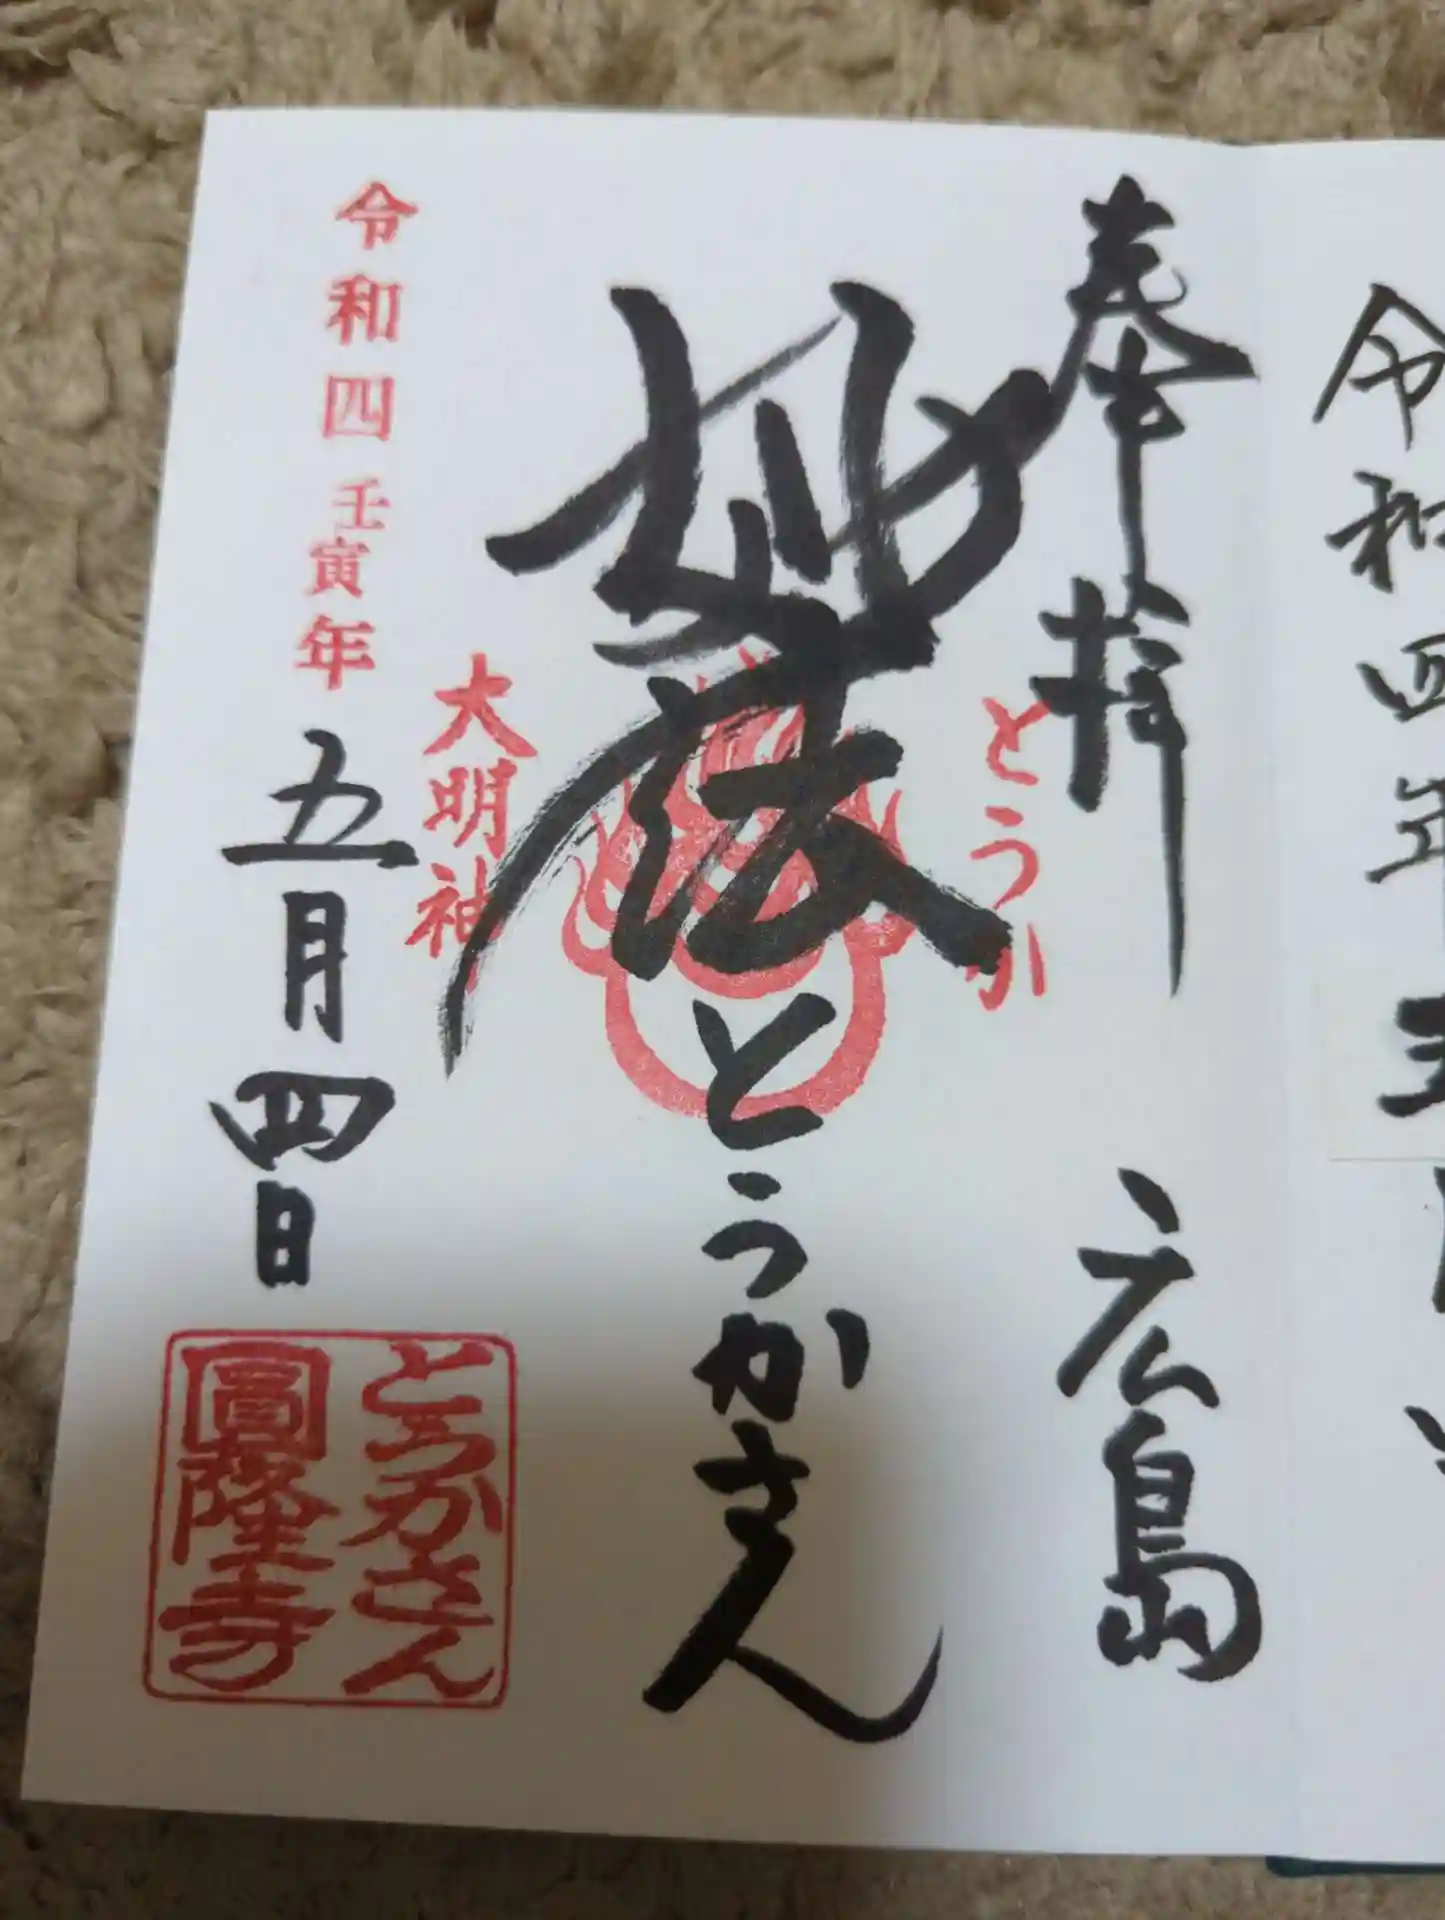 令和四年
奉拝 広島
とうか
妙法
とうかさん
大明神
令和四壬寅年五月四日
とうかさん
圓隆寺